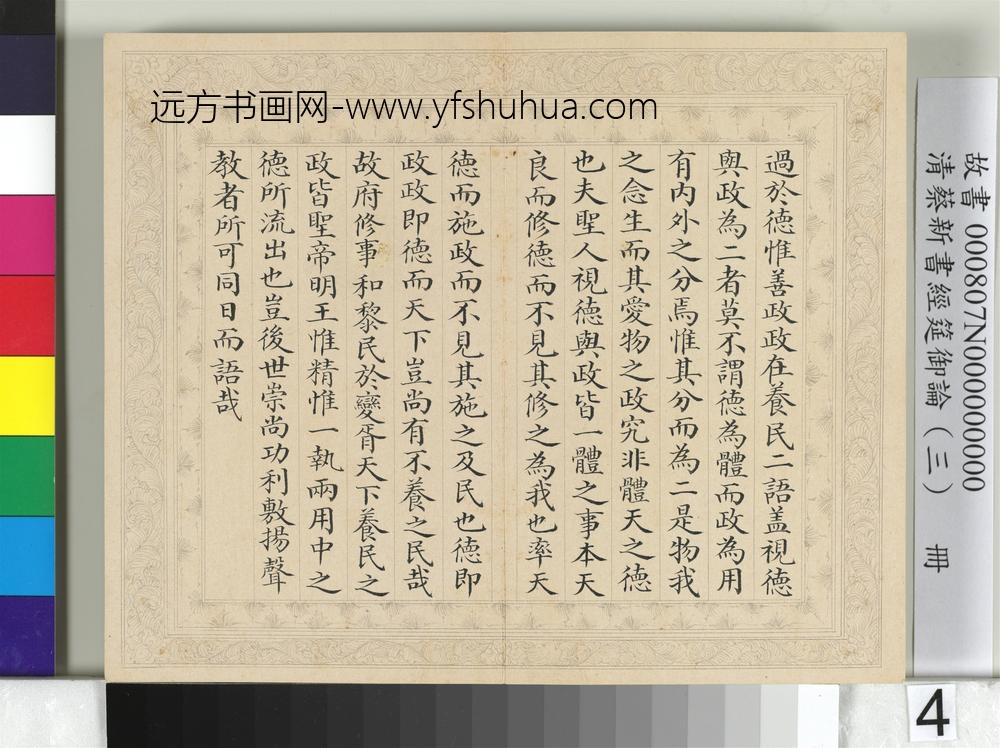 远方书画网-www.yfshuhua.com
過於德惟善政政在養民二語盖視德
與政為二者莫不謂德為體而政為用
有内外之分焉惟其分而為二是物我
之念生而其愛物之政究非體天之德
也夫聖人視德與政皆一體之事本天
良而修德而不見其修之為我也率天
德而施政而不見其施之及民也德即
政政即德而天下豈尚有不養之民哉
故府修事和黎民於變胥天下養民之
政皆聖帝明王惟精惟一執兩用中之
德所流出也豈後世崇尚功利敷揚聲
教者所可同日而語哉
故書 000807N000000000
清蔡新書經筵御論(三) 冊
4